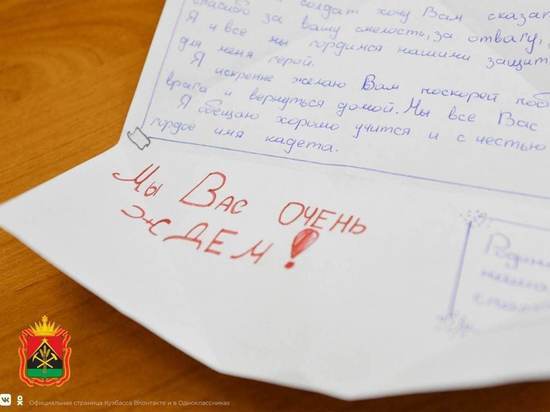 солдат хочу Вам сказат
спасибо за вашу смелость, за отвагу,
Я и все мы гордимся нашими защит
для меня герой.
Я искренне желаю Вам поскорей поб
врага и вернуться домой. Мы все Вас
Я обещаю хорошо учится и с честью
гордое имя кадета.
Мы Вас очень
ждем!
Официальная страница Кузбасса ВКонтакте и в Одноклассниках